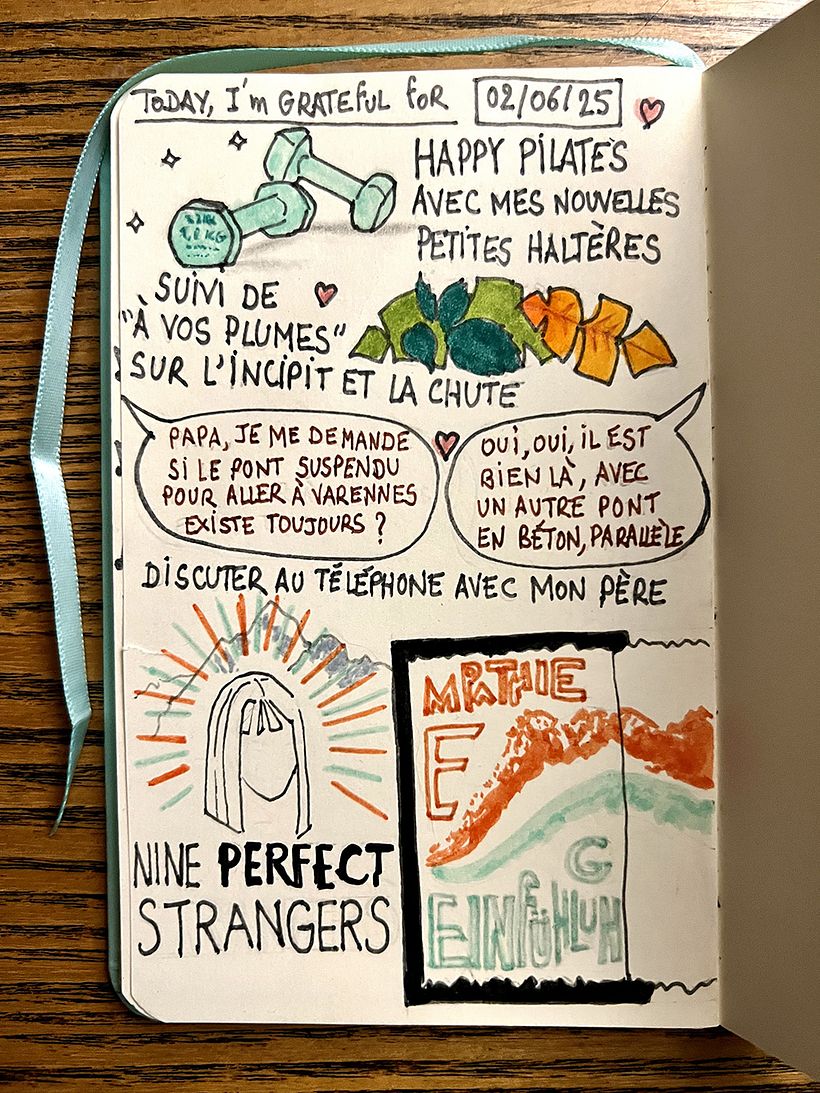 TODAY, I'm GRATEFUL FOR 02/06/25
HAPPY PILATES
AVEC MES NOUVELLES
PETITES HALTÈRES
KG
SUIVI DE
"À VOS PLUMES"
SUR L'INCIPIT ET LA CHUTE
PAPA, JE ME DEMANDE
SI LE PONT SUSPENDU
POUR ALLER À VARENNES
EXISTE TOUJOURS ?
OUI, OUI, IL EST
BIEN LÀ, AVEC
UN AUTRE PONT
EN BÉTON, PARALLÈLE
DISCUTER AU TÉLÉPHONE AVEC MON PÈRE
NINE PERFECT
STRANGERS
MPATHIE
E
G
EINFÜHLUN